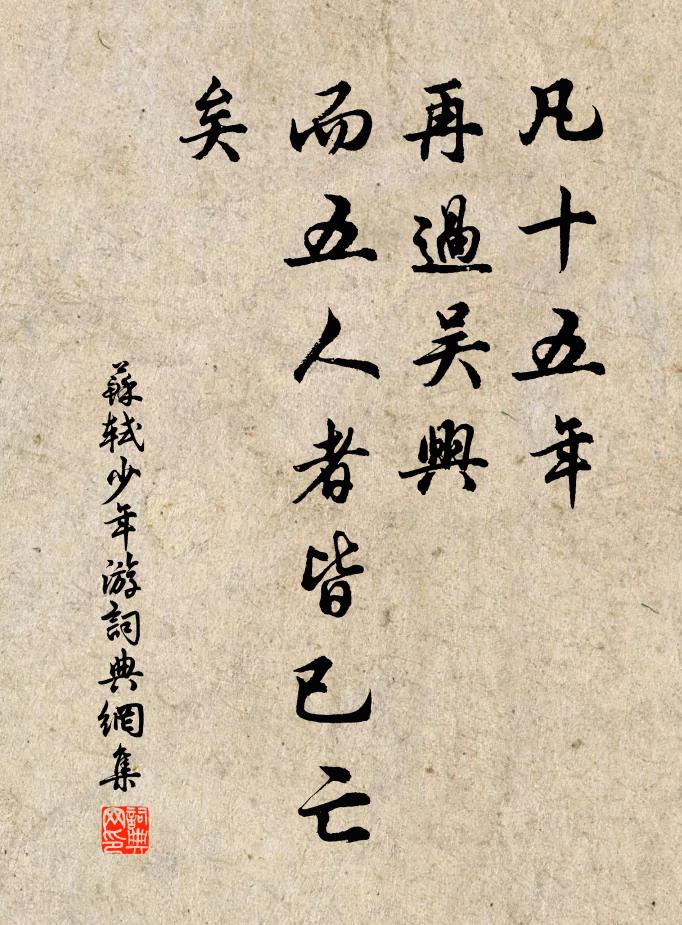 凡十五年
再過吴興
而五人者皆已亡
矣
蘇軾少年游詞典網集
詞典
网印